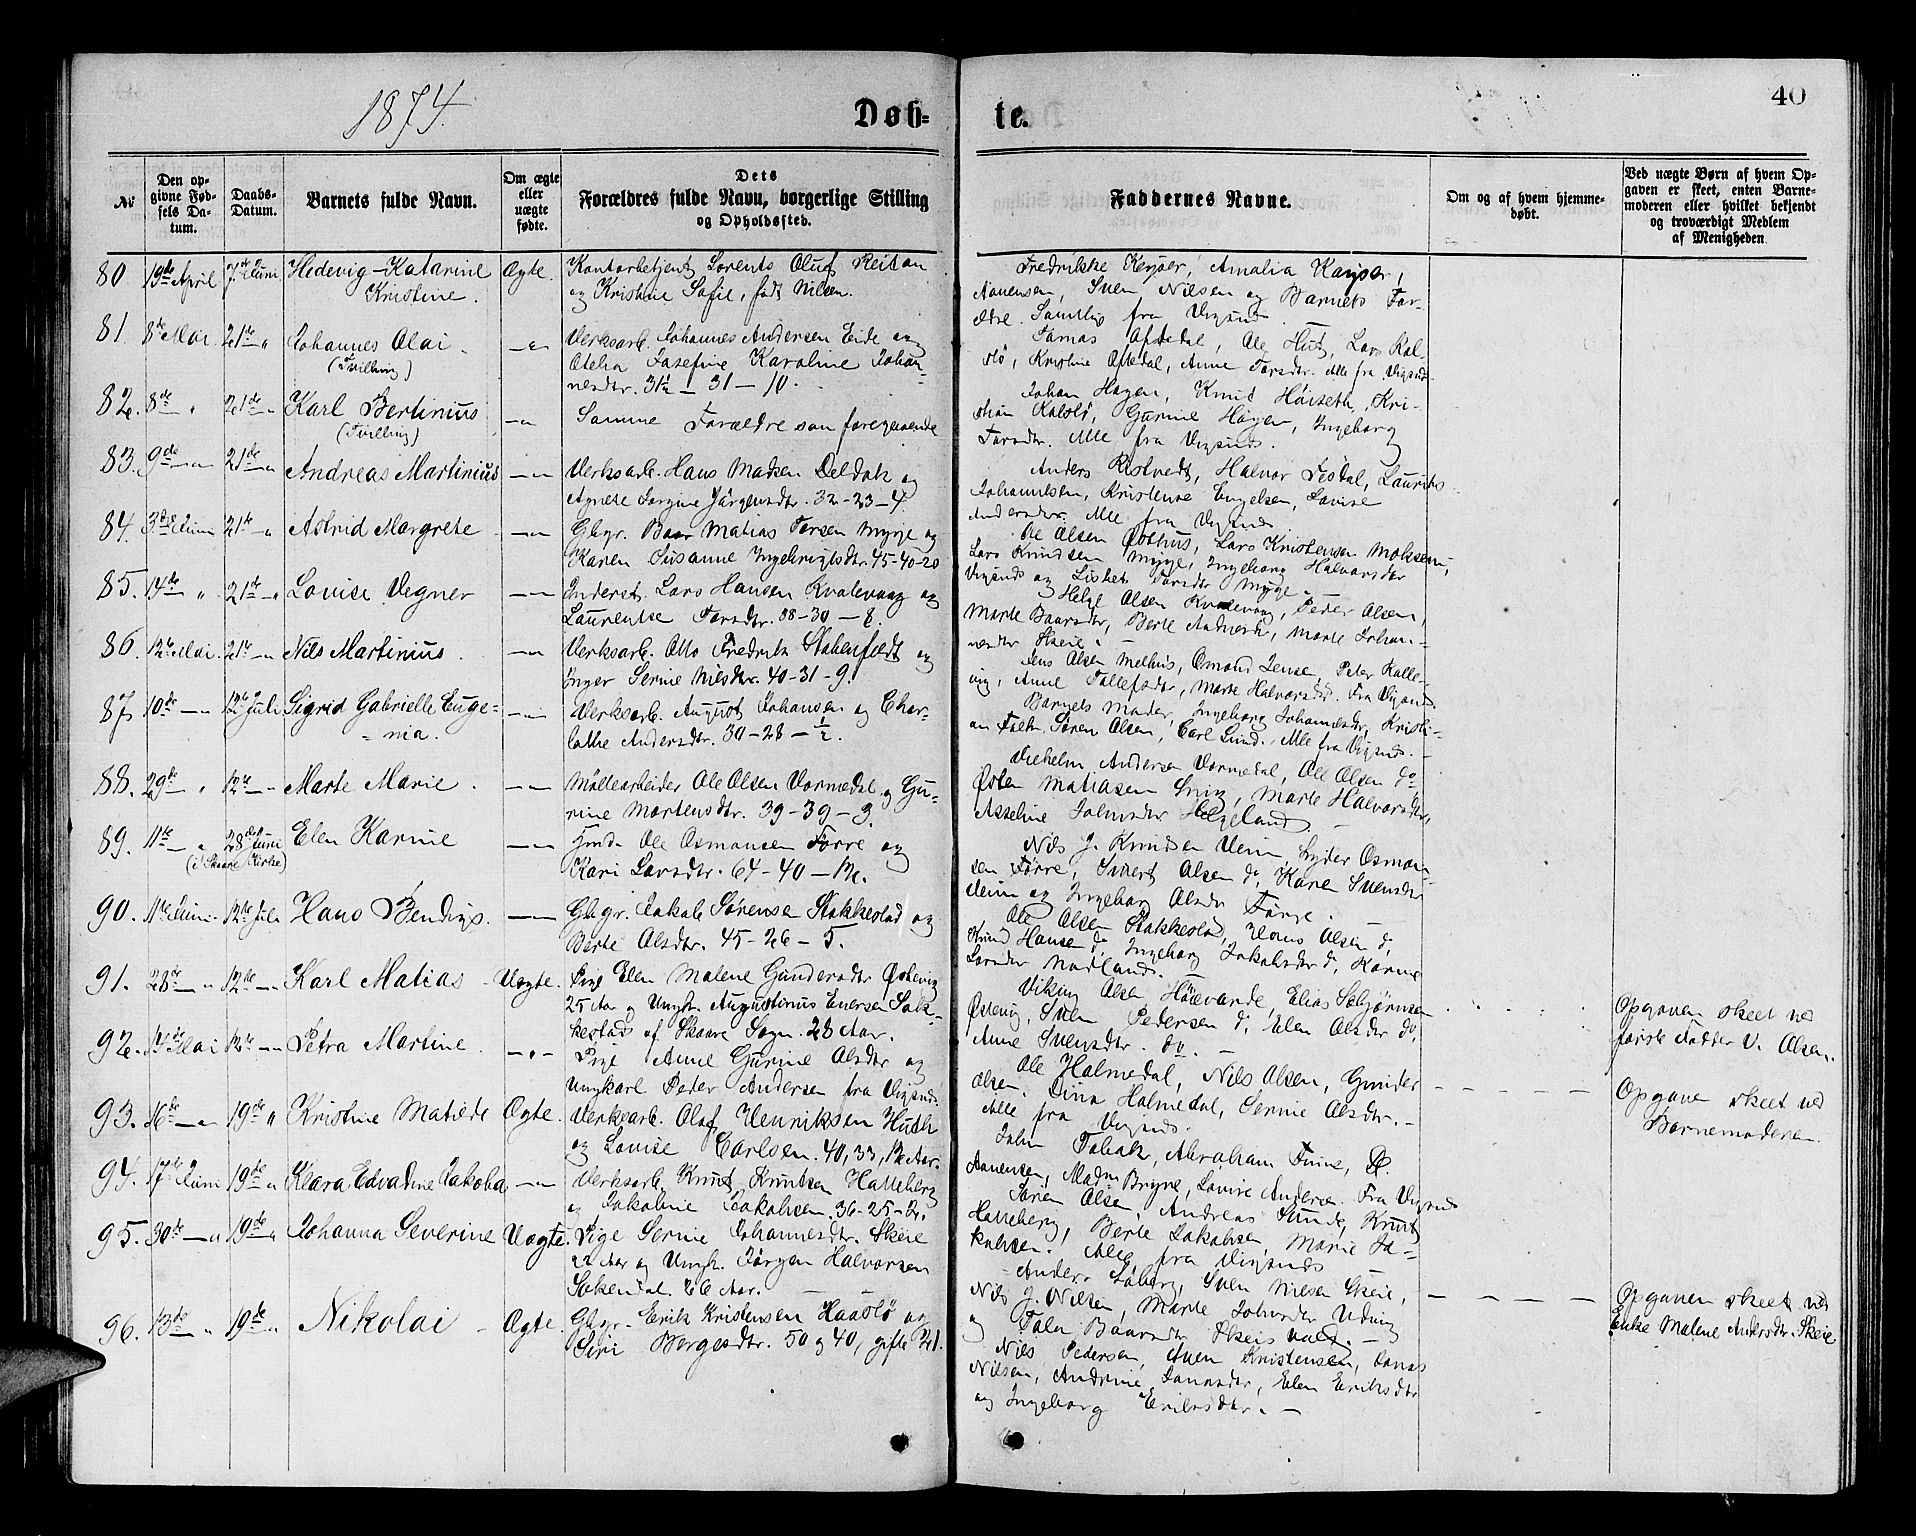 1874.
Døb-
te.
40
No
Den op-
givne Fød-
sels Da-
tum.
Daabs-
Datum.
Barnets fulde Navn.
Om ægte
eller
uægte
fødte.
Dets
Forældres fulde Navn, borgerlige Stilling
og Opholdssted.
Faddernes Navne.
Om og af hvem hjemme-
døbt.
Ved uægte Børn af hvem Op-
gaven er skeet, enten Barne-
moderen eller hvilket bekjendt
og troværdigt Medlem
af Menigheden
80. 19de April 7de Juni Hedevig Katarine Ægte. Kontorbetjent Lorents Oluf Reitan
Kristine. og Kristine Sofie, født Nilsen.
Fredrikke Keyser, Amalia Kayser,
Aanensen, Sven Nilsen og Barnets For-
ældre. Samtlig fra Vigsnes.
81. 8de Mai. 21de " Johannes Olai. — " Verksarb. Johannes Andersen Eide og
(Tvilling) Otelia Josefine Karoline Johan-
nesdtr. 31½ — 31 — 10.
Tomas Aftedal, Ole Hut, Lars Kol-
slø, Kristine Aftedal, Anne Larsdtr. Alle fra Vigsnes.
82. 8de " 21de " Karl Bertinius — " Samme Forældre som foregaaende
(Tvilling)
Johan Hagen, Knud Høiseth, Kri-
stian Kolslø, Gurine Hagen, Ingeborg
Larsdtr. Alle fra Vigsnes.
83. 9de — " 21de " Andreas Martinius — " Verksarb. Hans Madsen Deldok og
Agnete Jorgine Jørgensdtr. 32-23-4.
Anders Ristvedt, Halvor Tisdal, Laurits
Johannesen, Kristense Engelsen, Lovise
Andersdtr. Alle fra Vigsnes
84. 3die Juni 21de " Astrid Margrete — " Gbgr. Baar Matias Larsen Myge og
Karen Susanne Ingebrigtsdtr. 45-40-20
Ole Olsen Østhus, Lars Kristensen Moksem,
Lars Knudsen Myge, Ingeborg Halvorsdtr
Vigsnes og Lisbet Larsdtr Myge.
85. 14de " 21de " Lovise Vegner — Inderst. Lars Hansen Kvalevaag og
Laurentse Larsdtr. 38-30-8.
Helge Olsen Kvalevaag, Peder Olsen,
Marte Baarsdtr, Berte Andersdtr, Marte Johan-
nesdtr Skeie.
86. 12te Mai. 21de — " Nils Martinius. — " Verksarb. Otto Fredrik Stobenfeldt og
Inger Serine Nilsdtr. 40-31-9.
Jens Olsen Melhus, Omund Jense, Peter Kalle-
vig, Anne Tollefsdtr, Marte Halvorsdtr. Fra Vigsnes
87. 10de — " 12te Juli Sigrid Gabrielle Euge- — " Verksarb. August Johansen og Char-
nia. lotte Andersdtr. 30-28-½.
Barnets Moder, Ingeborg Johannesdtr, Kristi-
an Falk, Søren Olsen, Carl Lund. Alle fra Vigsnes. —
88. 29de " 12te — " Marte Marie. — " Møllearbeider Ole Olsen Vormedal og Gu-
rine Mortensdtr. 39-39-3.
Vilhelm Andersen Vormedal, Ole Olsen do
Østen Matiasen Snig, Marte Halvorsdtr,
Asseline Johnsdtr Helgeland.
89. 11te — " 28de Juni Elen Karine — " Gmd. Ole Osmonsen Førre og
(i Skaare Kirke) Kari Larsdtr. 64-40-12.
Nils J. Knudsen Veim, Lyder Osmon-
sen Førre, Sivert Olsen do, Karen Svensdtr
Veim og Ingeborg Olsdtr Førre.
90. 11te Juni 12te Juli Hans Bendiys. — Gbgr. Jakob Sørensen Stokkestad og
Berte Olsdtr. 45-26-5.
Ole Olsen Stokkestad, Hans Olsen do,
Knud Hansen do, Ingeborg Jakobsdtr do, Karine
Larsdtr Nodland.
91. 28de — " 12te — " Karl Matias Uægte. Pige Elen Malene Gundersdtr Østevig
25 Aar og Ungk. Augustinus Enersen Sok-
kestad af Skaare Sogn. 28 Aar.
Viking Olsen Høievarde, Elias Asbjørnsen
Østevig, Sven Pedersen do, Elen Olsdtr do,
Anne Svensdtr. do. —
Opgaven skeet ved
første Fadder V. Olsen.
92. 14de Mai 12te — " Petra Martine. — " Pige Anne Gurine Olsdtr og
Ungkarl Peder Andersen fra Vigsnes
Ole Holmedal, Nils Olsen, Gunder
Olsen Dina Holmedal, Serine Olsdtr. —
Alle fra Vigsnes.
Opgaven skeet ved
Barnemoderen.
93. 16de — " 19de " Kristine Matilde Ægte. Verksarb. Olaf Henriksen Huth
og Lovise Carlsen. 40, 33, 12 Aar.
John Tobak, Abraham Tune, O.
Aanensen, Madm Bryne, Lovise Anderse. Fra Vigsnes
94. 17de Juni 19de " Klara Edvardine Jakoba — " Verksarb. Knut Knutsen Hatteberg
og Jakobine Jakobsen. 36-25-2.
Søren Olsen, Andreas Sunde, Knut
Hatteberg, Berte Jakobsen, Marie Ja-
kobsen. Alle fra Vigsnes
95. 30de — " 19de " Johanna Severine Uægte. Pige Serine Johannesdtr. Skeie
22 Aar og Ungk. Jørgen Halvorsen
Sokendal. 26 Aar.
Anders Solberg, Sven Nilsen Skeie,
Nils J. Nilsen, Marte Johnsdtr Udvig
og Tala Baarsdtr Skeisvold. —
Opgaven skeet ved
Enke Malene Andersdtr. Skeie
96. 13de " 19de " Nikolai Ægte. Gbgr. Erik Kristensen Haaslø og
Siri Borgesdtr. 50 og 40, gifte 21.
Nils Pedersen, Aven Kristensen, Jonas
Nilsen, Andrine Jonasdtr, Elen Eriksdtr
og Ingeborg Eriksdtr. —